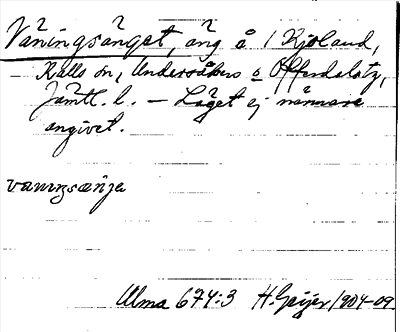 Våningsänget, äng å / Kjoland,
– Kalls sn, Undersåkers o Offerdals tg,
Jämtl. l. – Läget ej närmare
angivet.
vaningsæn̄ja
Ulma 674:3 H. Geijer 1904-09.